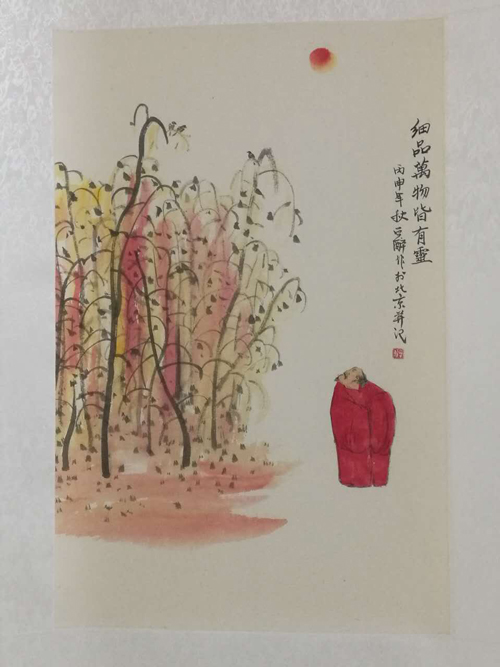 细品萬物皆有靈
丙申年秋 作於北京并记